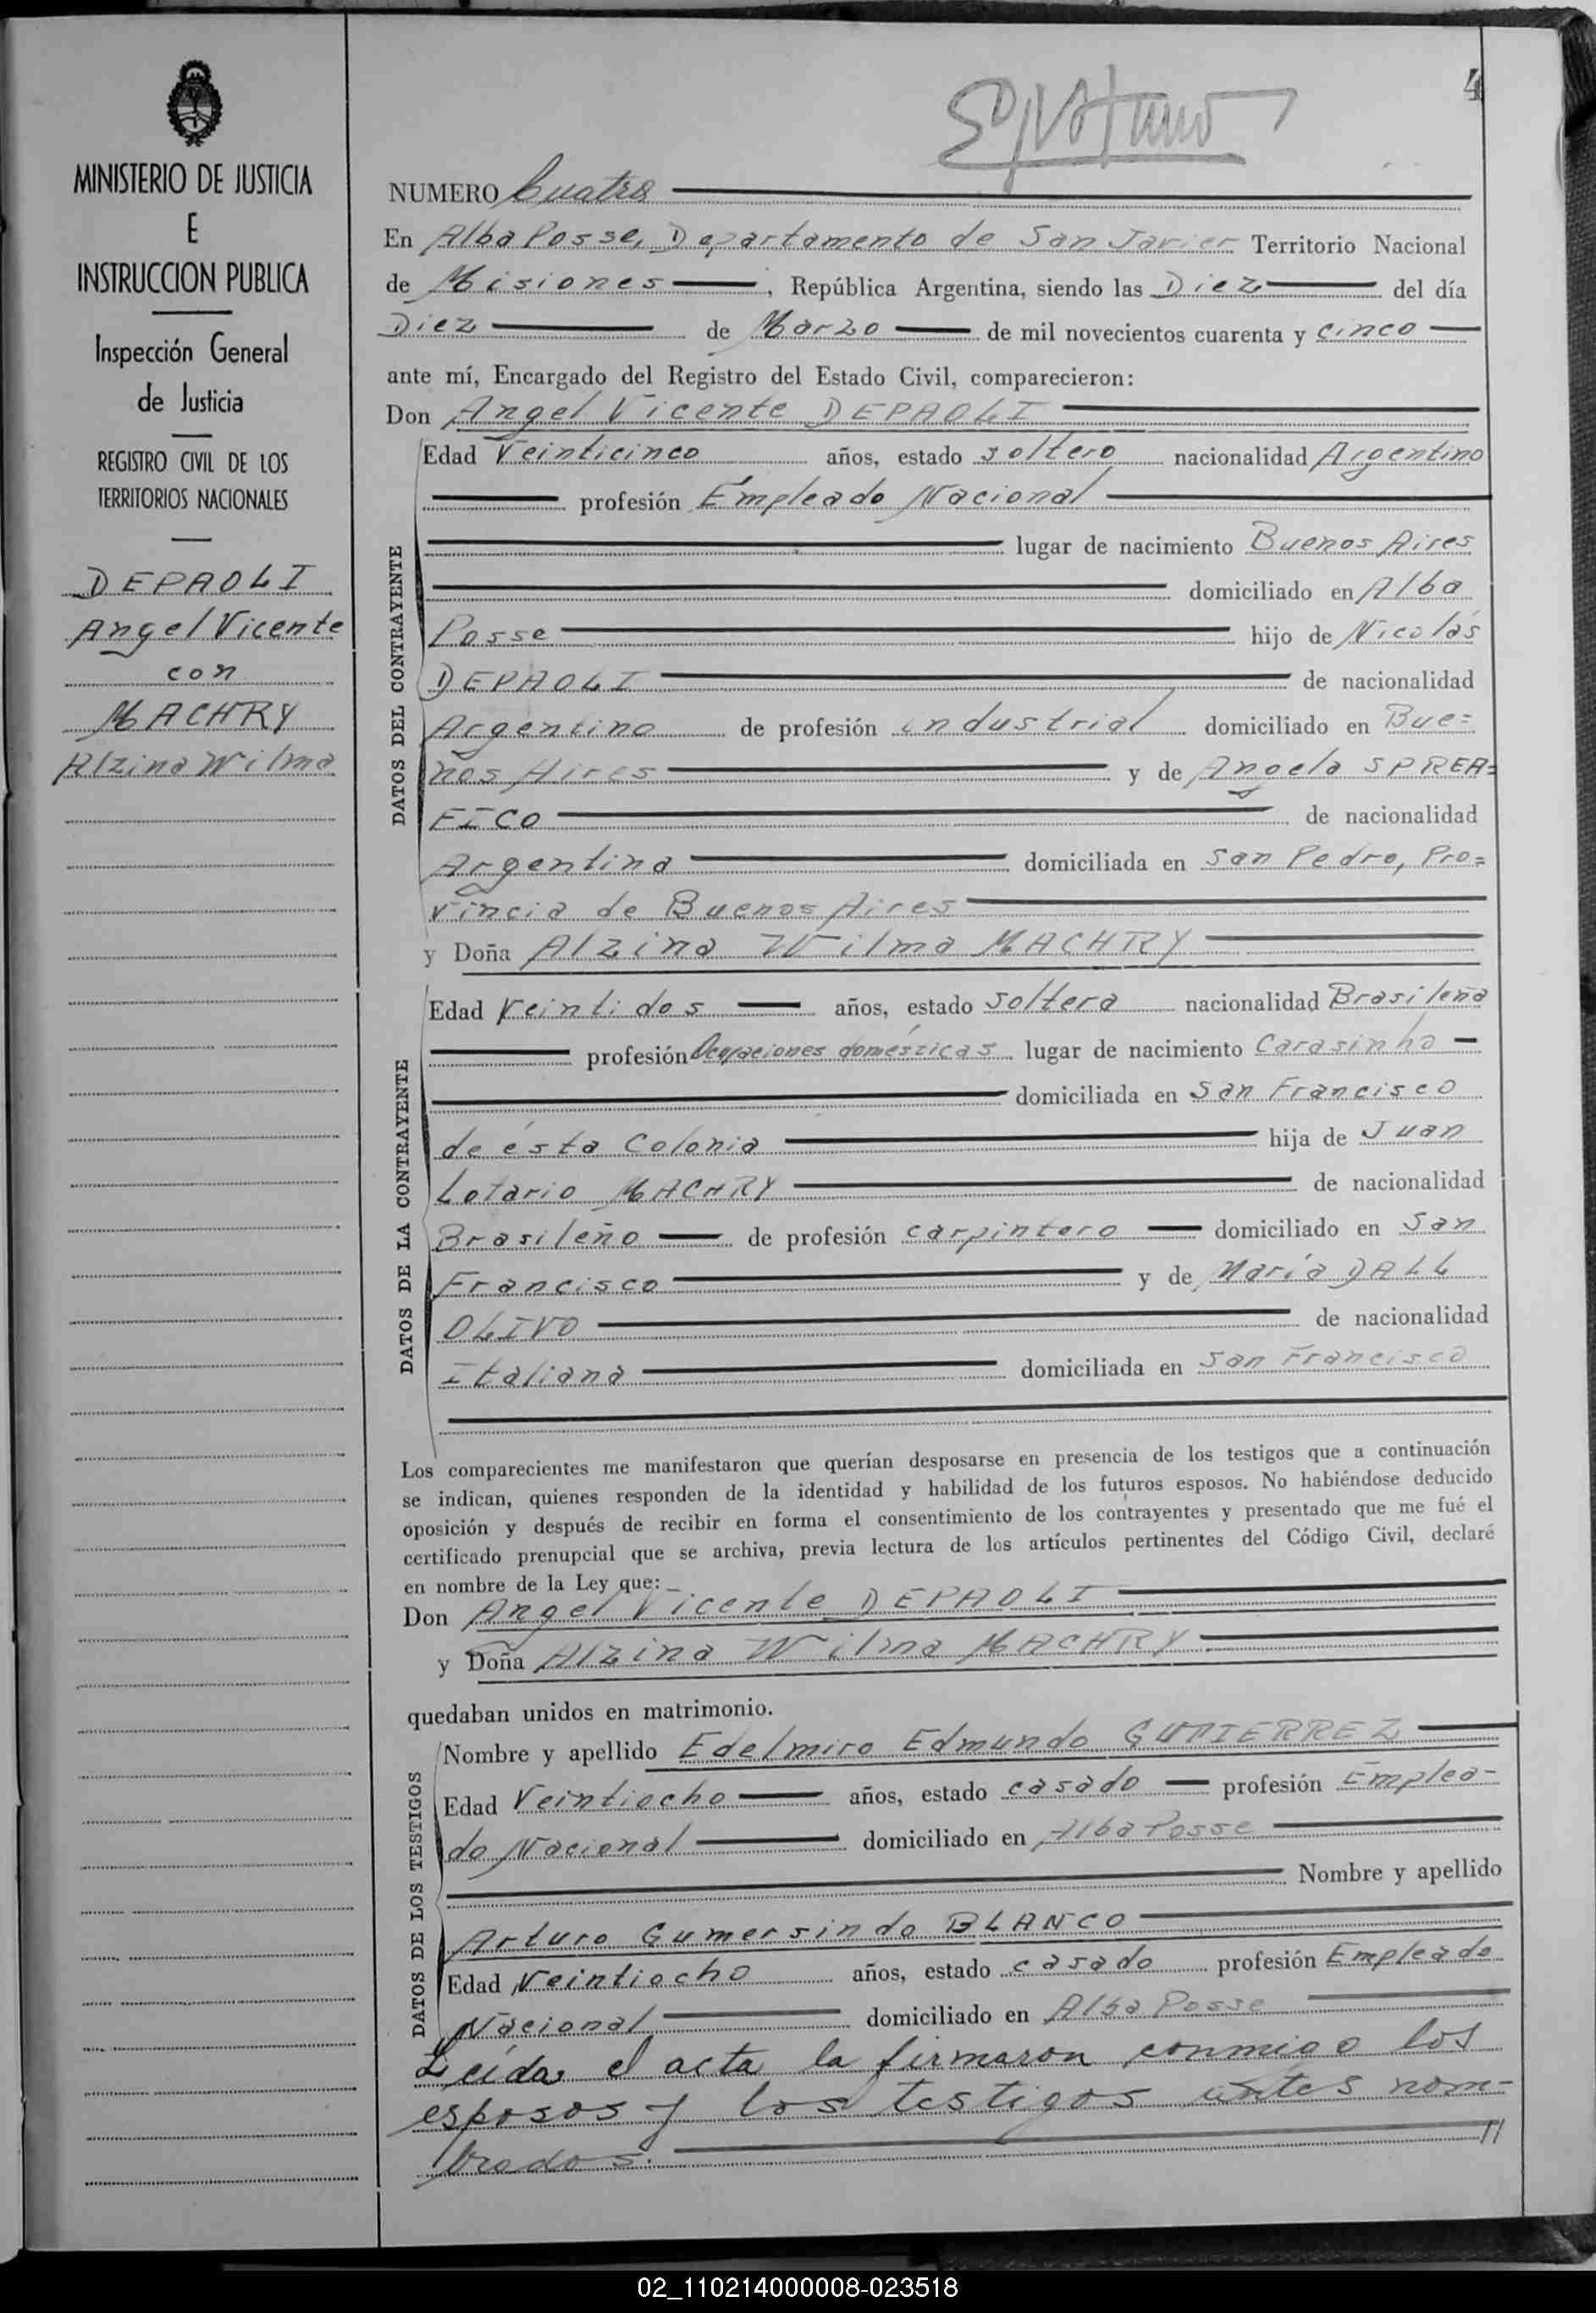 4
MINISTERIO DE JUSTICIA
E
INSTRUCCION PUBLICA
Inspección General
de Justicia
REGISTRO CIVIL DE LOS
TERRITORIOS NACIONALES
DEPAOLI
Angel Vicente
con
MACHRY
Alzina Wilma
NUMERO Cuatro
En Alba Posse, Departamento de San Javier Territorio Nacional
de Misiones, República Argentina, siendo las Diez del día
Diez de Marzo de mil novecientos cuarenta y cinco
ante mí, Encargado del Registro del Estado Civil, comparecieron:
Don Angel Vicente DEPAOLI
DATOS DEL CONTRAYENTE
Edad Veinticinco años, estado soltero nacionalidad Argentino
profesión Empleado Nacional
lugar de nacimiento Buenos Aires
domiciliado en Alba
Posse hijo de Nicolás
DEPAOLI de nacionalidad
Argentino de profesión industrial domiciliado en Bue=
nos Aires y de Angela SPREA=
FICO de nacionalidad
Argentina domiciliada en San Pedro, Pro=
vincia de Buenos Aires
y Doña Alzina Wilma MACHRY
DATOS DE LA CONTRAYENTE
Edad Veintidos años, estado soltera nacionalidad Brasileña
profesión Ocupaciones domésticas lugar de nacimiento Carasinho
domiciliada en San Francisco
de ésta Colonia hija de Juan
Lotario MACHRY de nacionalidad
Brasileño de profesión carpintero domiciliado en San
Francisco y de María DALL
OLIVO de nacionalidad
Italiana domiciliada en San Francisco
Los comparecientes me manifestaron que querían desposarse en presencia de los testigos que a continuación
se indican, quienes responden de la identidad y habilidad de los futuros esposos. No habiéndose deducido
oposición y después de recibir en forma el consentimiento de los contrayentes y presentado que me fué el
certificado prenupcial que se archiva, previa lectura de los artículos pertinentes del Código Civil, declaré
en nombre de la Ley que:
Don Angel Vicente DEPAOLI
y Doña Alzina Wilma MACHRY
quedaban unidos en matrimonio.
DATOS DE LOS TESTIGOS
Nombre y apellido Edelmiro Edmundo GUTIERREZ
Edad Veintiocho años, estado casado profesión Emplea-
do Nacional domiciliado en Alba Posse
Nombre y apellido
Arturo Gumersindo BLANCO
Edad Veintiocho años, estado casado profesión Empleado
Nacional domiciliado en Alba Posse
Leída el acta la firmaron conmigo los
esposos y los testigos antes nom-
brados.
02_110214000008-023518